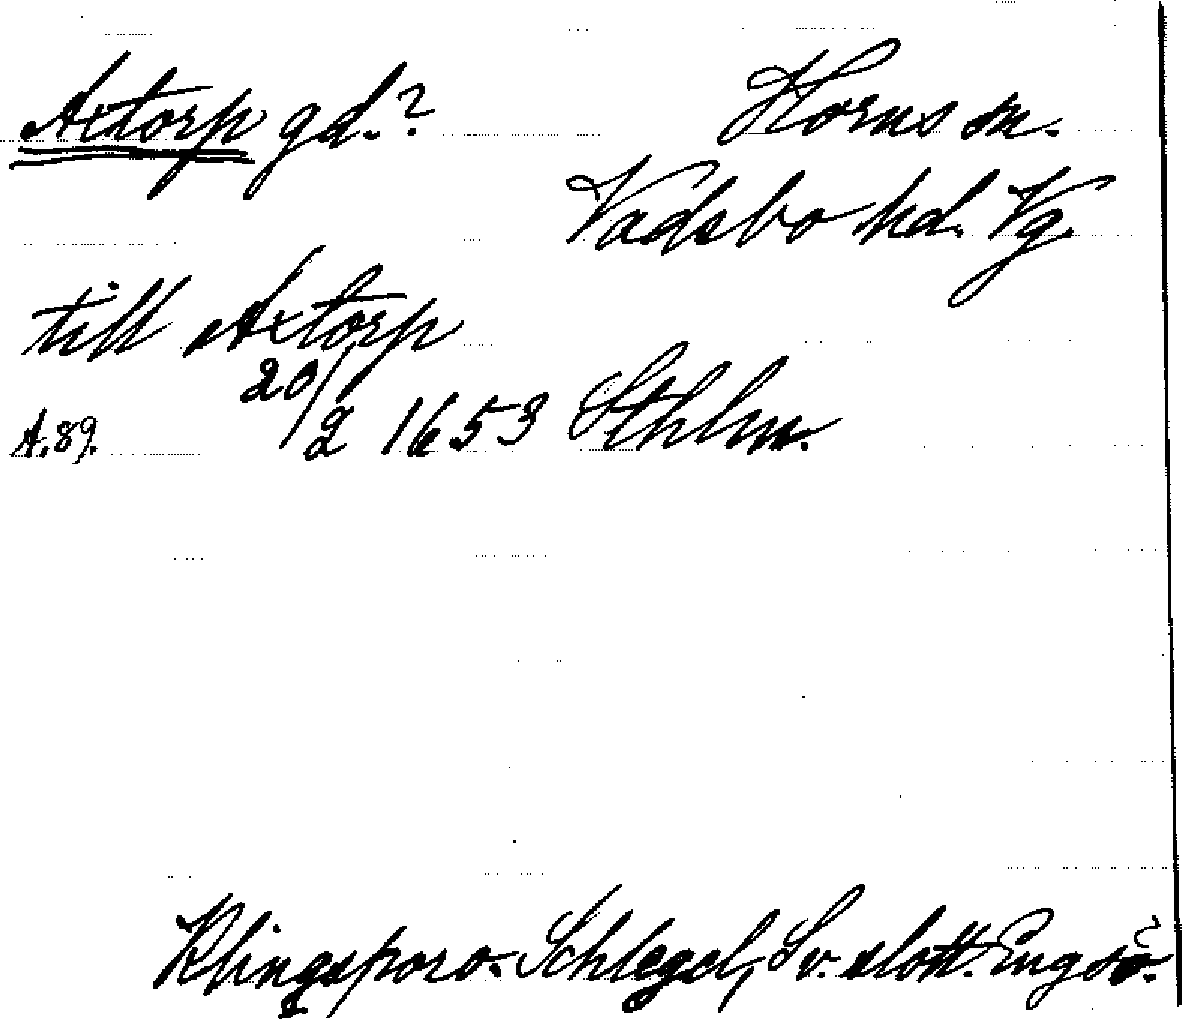 Axtorp gd.? Horns sn.
Vadsbo hd. Vg.
till Axtorp
20/2 1653 Sthlm.
A.89.
Klingspor o. Schlegel, Sv. slott. Engsö.